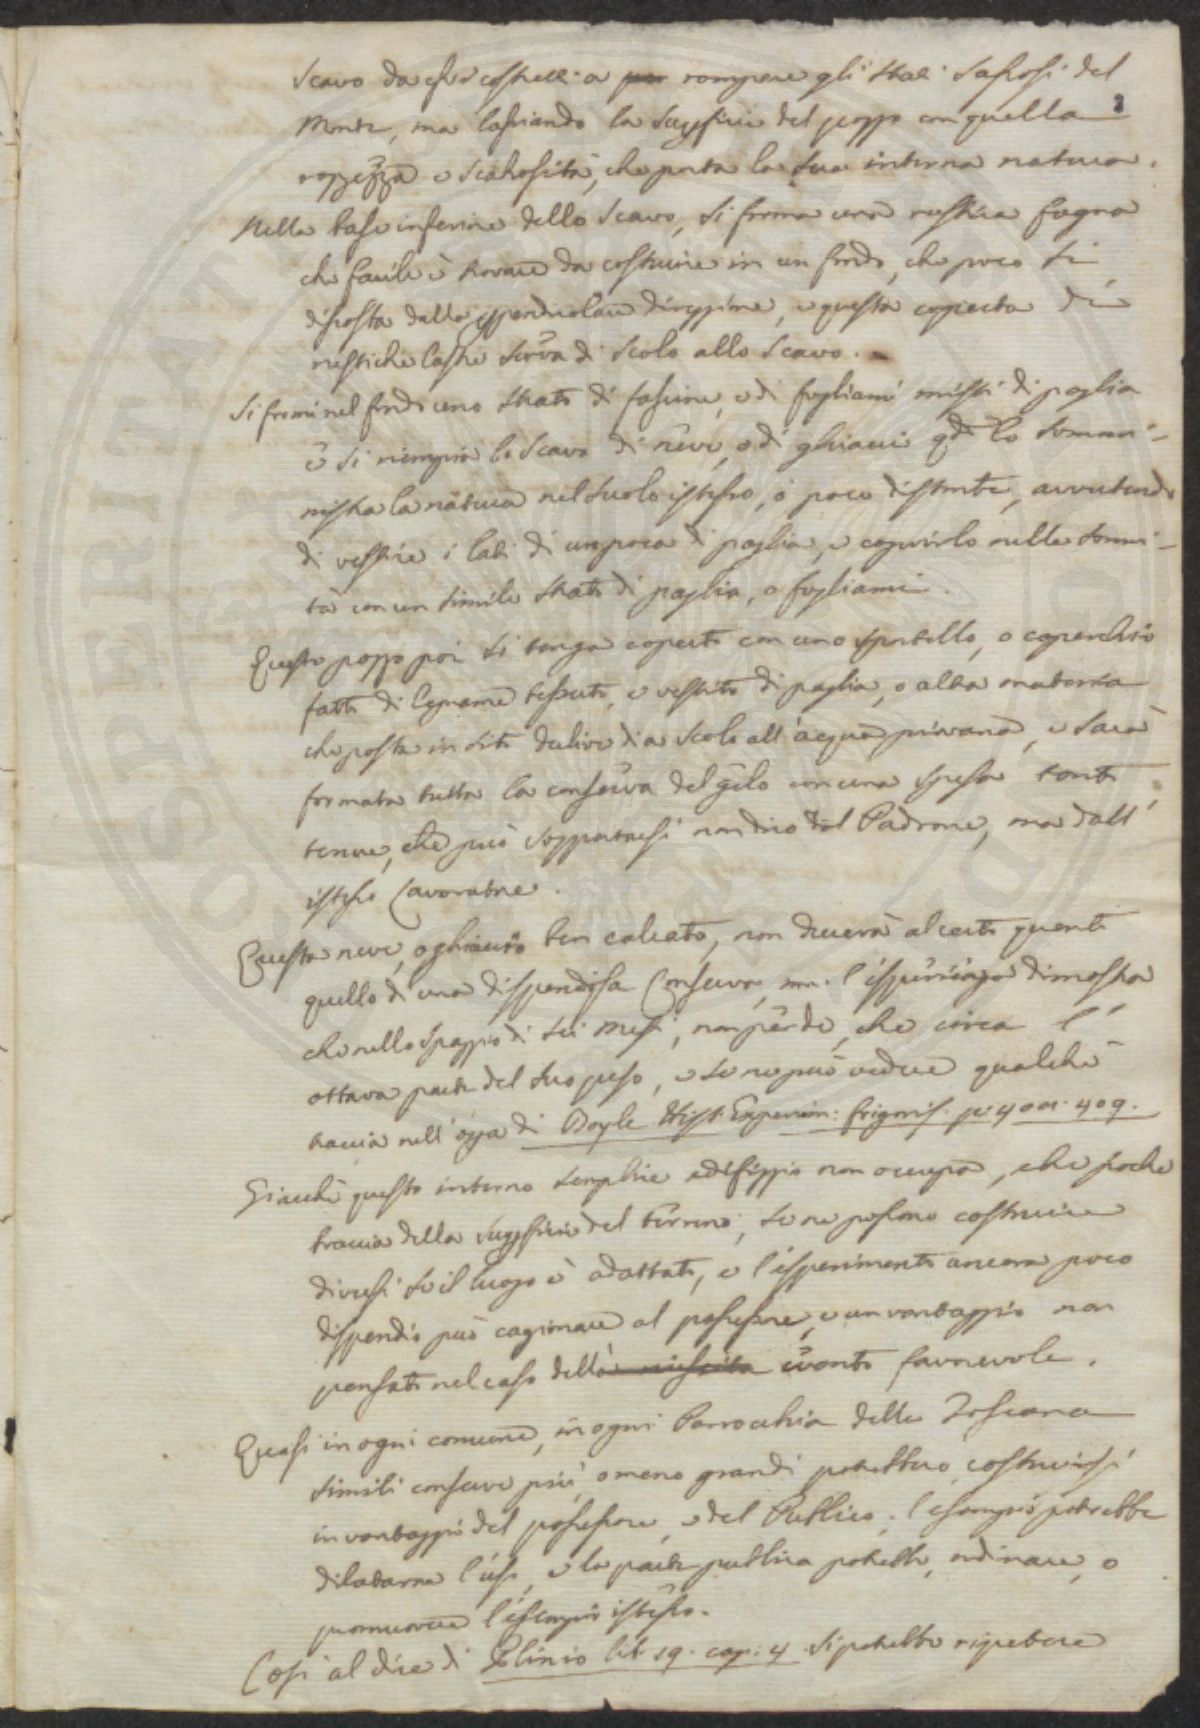 scavo da essi costrutti a per rompere gli strati sassosi del
Monte, ma lasciando la superficie del pozzo con quella
rozzezza e scabrosità, che porta la sua interna natura.
Nella base inferiore dello scavo, si forma una rustica fogna
che facile è trovare da costruire in un fondo, che poco si
discosta dalla perpendicolare direzzione, e questa coperta di
rustiche lastre serva di scolo allo scavo.
Si formi nel fondo uno strato di fascine, e di fogliami misti di paglia
e si riempia lo scavo di neve, o di ghiacci qdo lo sommi-
nistra la natura nel suolo istesso, o poco distante, avvertendo
di vestire i lati di un poca di paglia, e coprirlo nella sommi-
tà con un simile strato di paglia, o fogliami.
Questo pozzo poi si tenga coperto con uno sportello, o coperchio
fatto di legname tessuto, e vestito di paglia, o altra materia
che posta in sito declive dia scolo all'acqua piovana, e sarà
formata tutta la conserva del gelo con una spesa tanto
tenue, che può sopportarsi non dirò dal Padrone, ma dall'
istesso Lavoratore.
Questa neve, o ghiaccio ben calcato, non durerà al certo quanto
quello di una dispendiosa Conserva, ma l'esperienza dimostra
che nello spazzio di sei mesi, non perde, che circa l'
ottava parte del suo peso, e se ne può vedere qualche
traccia nell'opa di Boyle Hist. Experim: frigoris. p: 408: 409.
Giacchè questo interno semplice edifizzio non occupa, che poche
braccia della superficie del terreno, se ne possono costruire
diversi se il luogo è adattato, e l'esperimento ancora poco
dispendio può cagionare al possessore, e un vantaggio non
pensato nel caso della riuscita evento favorevole.
Quasi in ogni comune, in ogni Parrocchia della Toscana
simili conserve più, o meno grandi potrebbero costruirsi
in vantaggio del possessore, e del Publico; l'esempio potrebbe
dilatarne l'uso, e la parte publica potrebbe, ordinare, o
promuovere l'esempio istesso.
Così al dire di Plinio lib. 19. cap: 4 si potrebbe ripetere